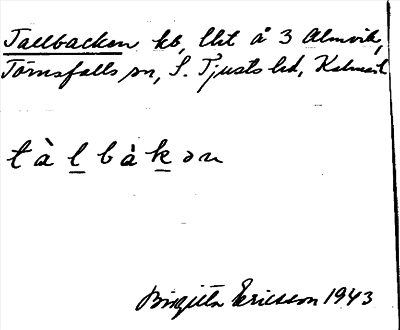 Tallbacken kb, lht å 3 Almvik,
Törnsfalls sn, S. Tjusts hd, Kalmar l
tàlbàkən
Birgitta Ericsson 1943